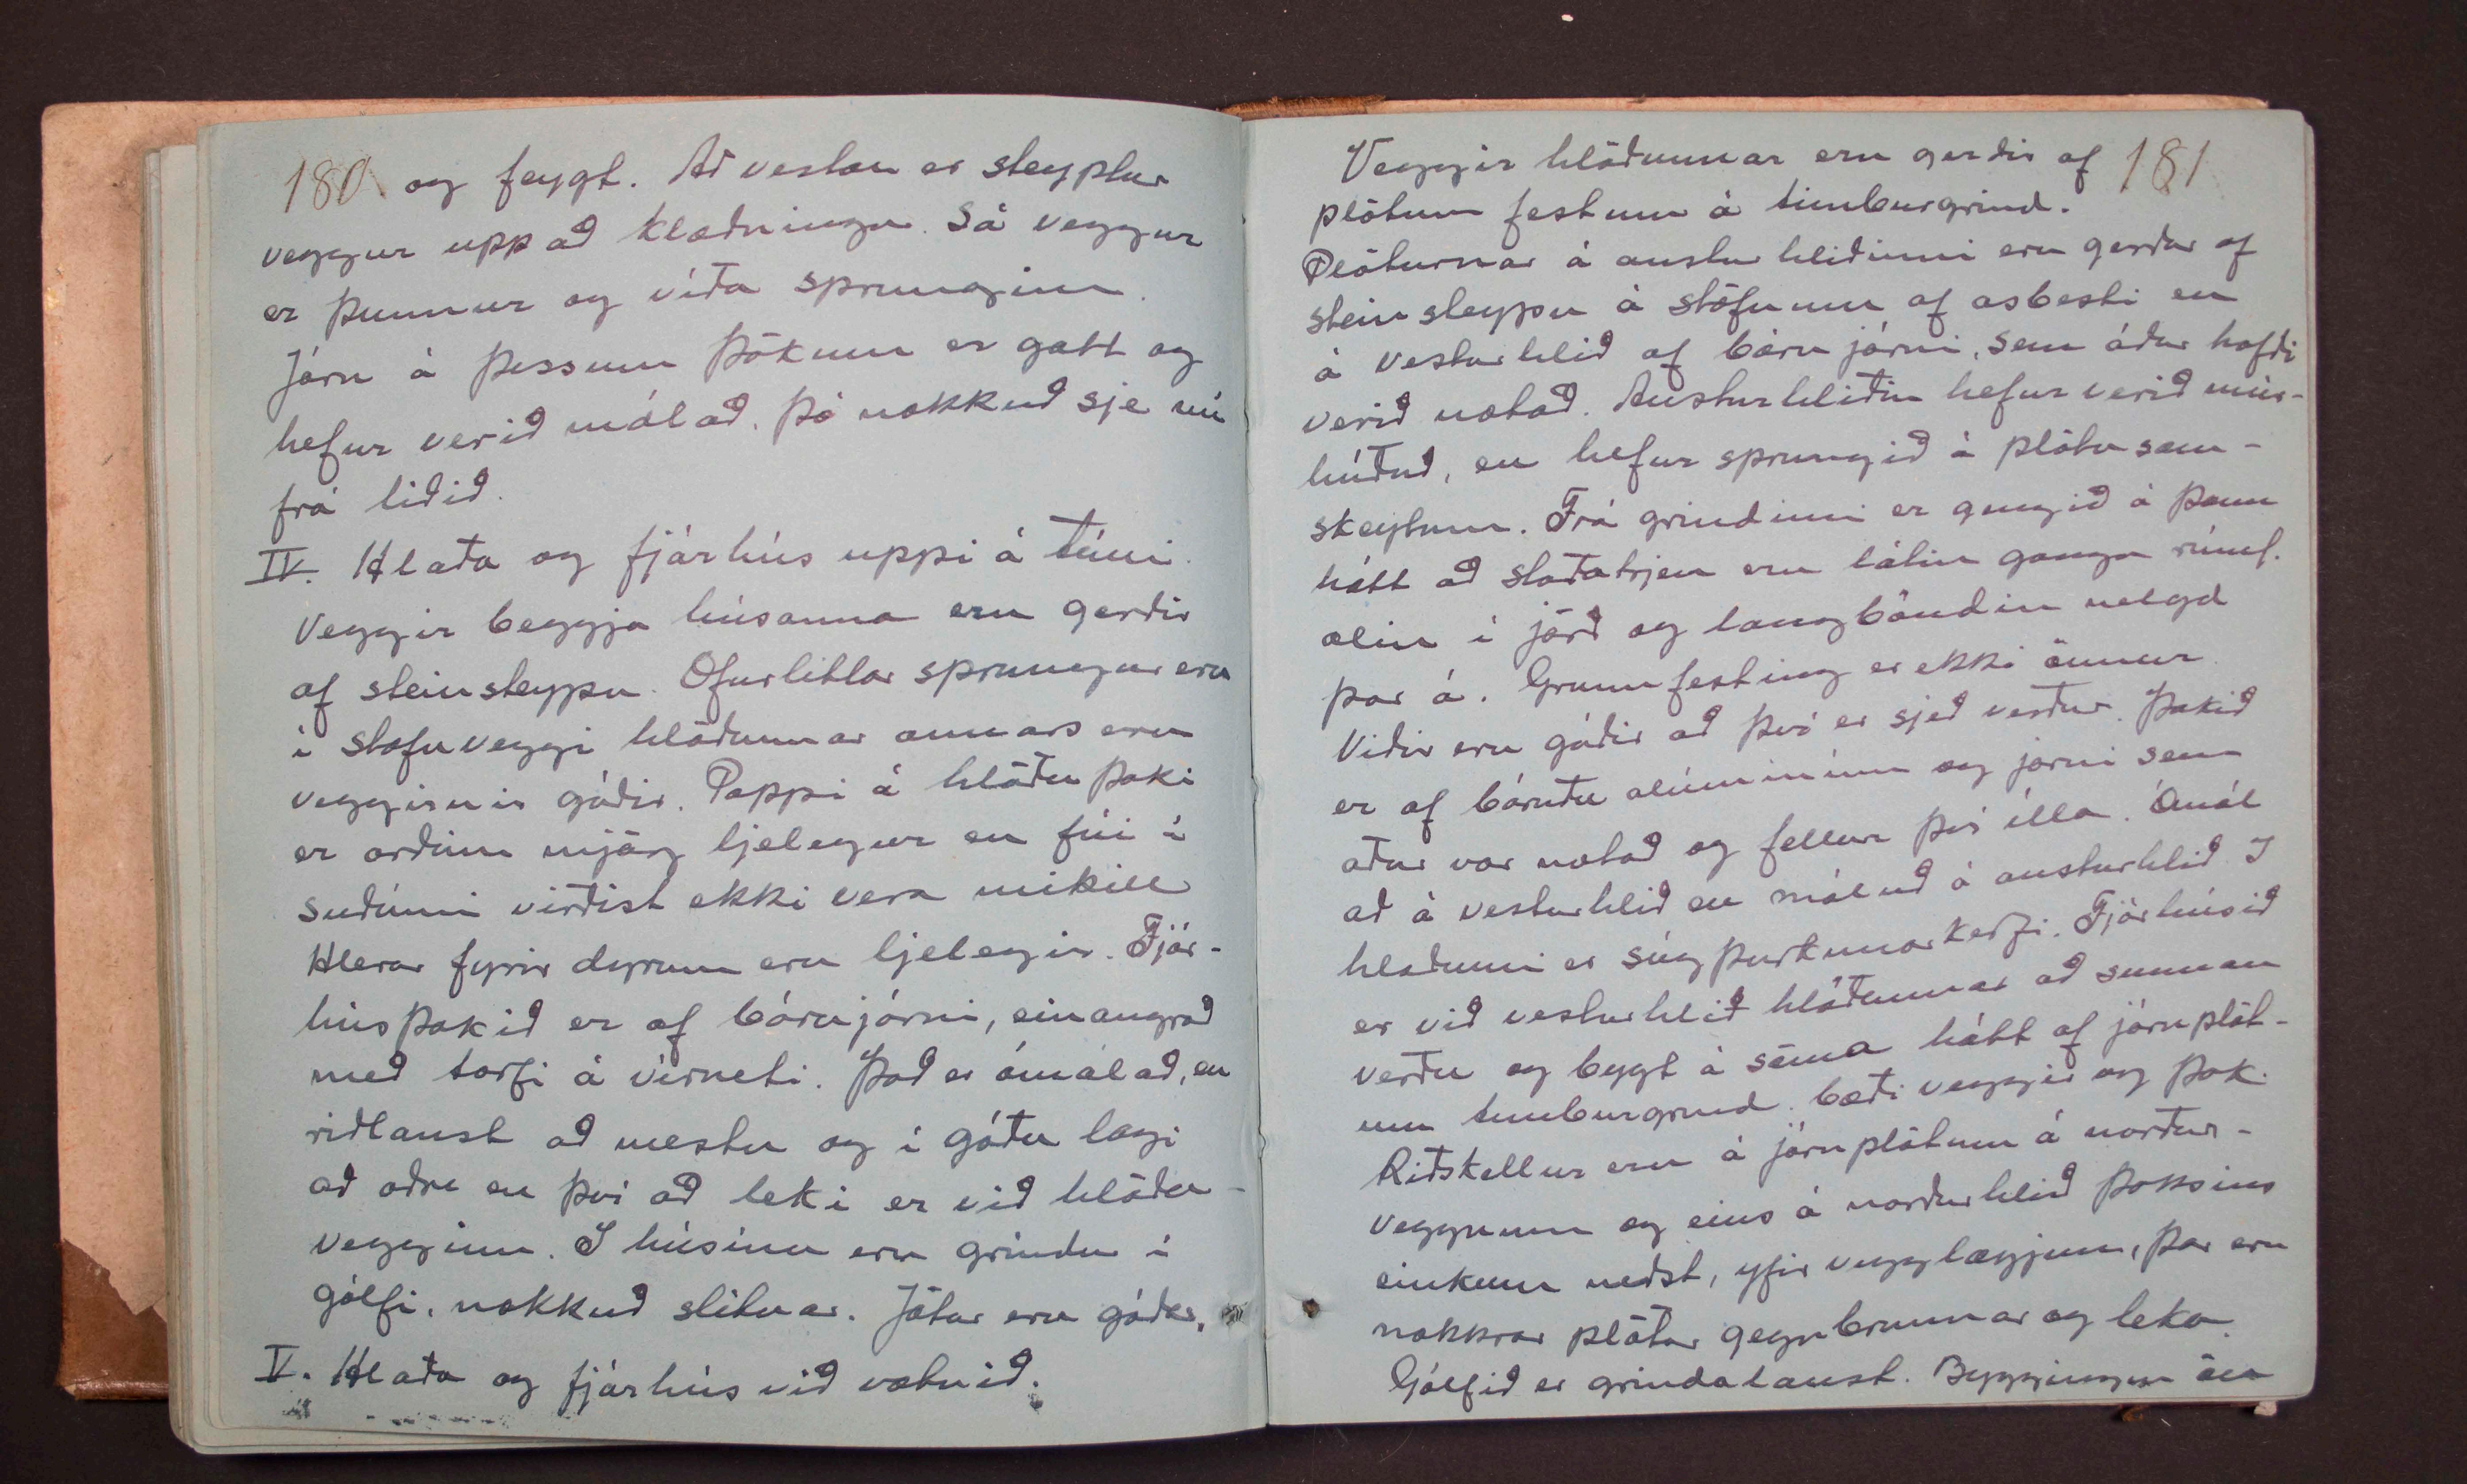 180 og feygt. Að vestan er steyptur
veggur upp að klæðningu. Sá veggur
er þunnur og víða sprunginn.
Járn á þessum þökum er gott og
hefur verið málað, þó nokkuð sje nú
frá liðið.
IV. Hlaða og fjárhús uppi á túni.
Veggir beggja húsanna eru gerðir
af steinsteypu. Ofurlitlar sprungur eru
í stafnveggi hlöðunnar annars eru
veggirnir góðir. Pappi á hlöðu þaki
er orðinn mjög ljelegur en fúi í
súðinni virðist ekki vera mikill
Hlerar fyrir dyrum eru ljelegir. Fjár-
húsþakið er af bárujárni, einangrað
með torfi á vírneti. Það er ómálað, en
riðlaust að mestu og í góðu lagi
að öðru en því að leki er við hlöðu-
vegginn. I húsinu eru grindur í
gólfi, nokkuð slitnar. Jötur eru góðar.
V. Hlaða og fjárhús við vatnið.
181
Veggir hlöðunnar eru gerðir af
plötum festum á timburgrind.
Plöturnar á austur hliðinni eru gerðar af
steinsteypu á stöfnum af asbesti en
á vesturhlið af báru járni, sem áður hafði
verið notað. Austurhliðin hefur verið múr-
húðuð, en hefur sprungið á plötusam-
skeytum. Frá grindinni er gengið á þann
hátt að stoðatrjen eru látin ganga rúml.
alin í jörð og langböndin nelgd
þar á. Grunnfesting er ekki önnur.
Viðir eru góðir að því er sjeð verður. Þakið
er af báruðu alúminíum og járni sem
aður var notað og fellur því illa. Ómál
að á vesturhlið en málað á austurhlið. I
hlöðunni er súgþurkunarkerfi. Fjárhúsið
er við vesturhlið hlöðunnar að sunnan
verðu og bygt á sama hátt af járnplöt-
um timburgrind. bæði veggir og þak.
Riðskellur eru á járnplötum á norður-
veggnum og eins á norðurhlið þaksins
einkum neðst, yfir vegglægjum, þar eru
nokkrar plötur gegnbrunnar og leka.
Gólfið er grindalaust. Byggingin öll